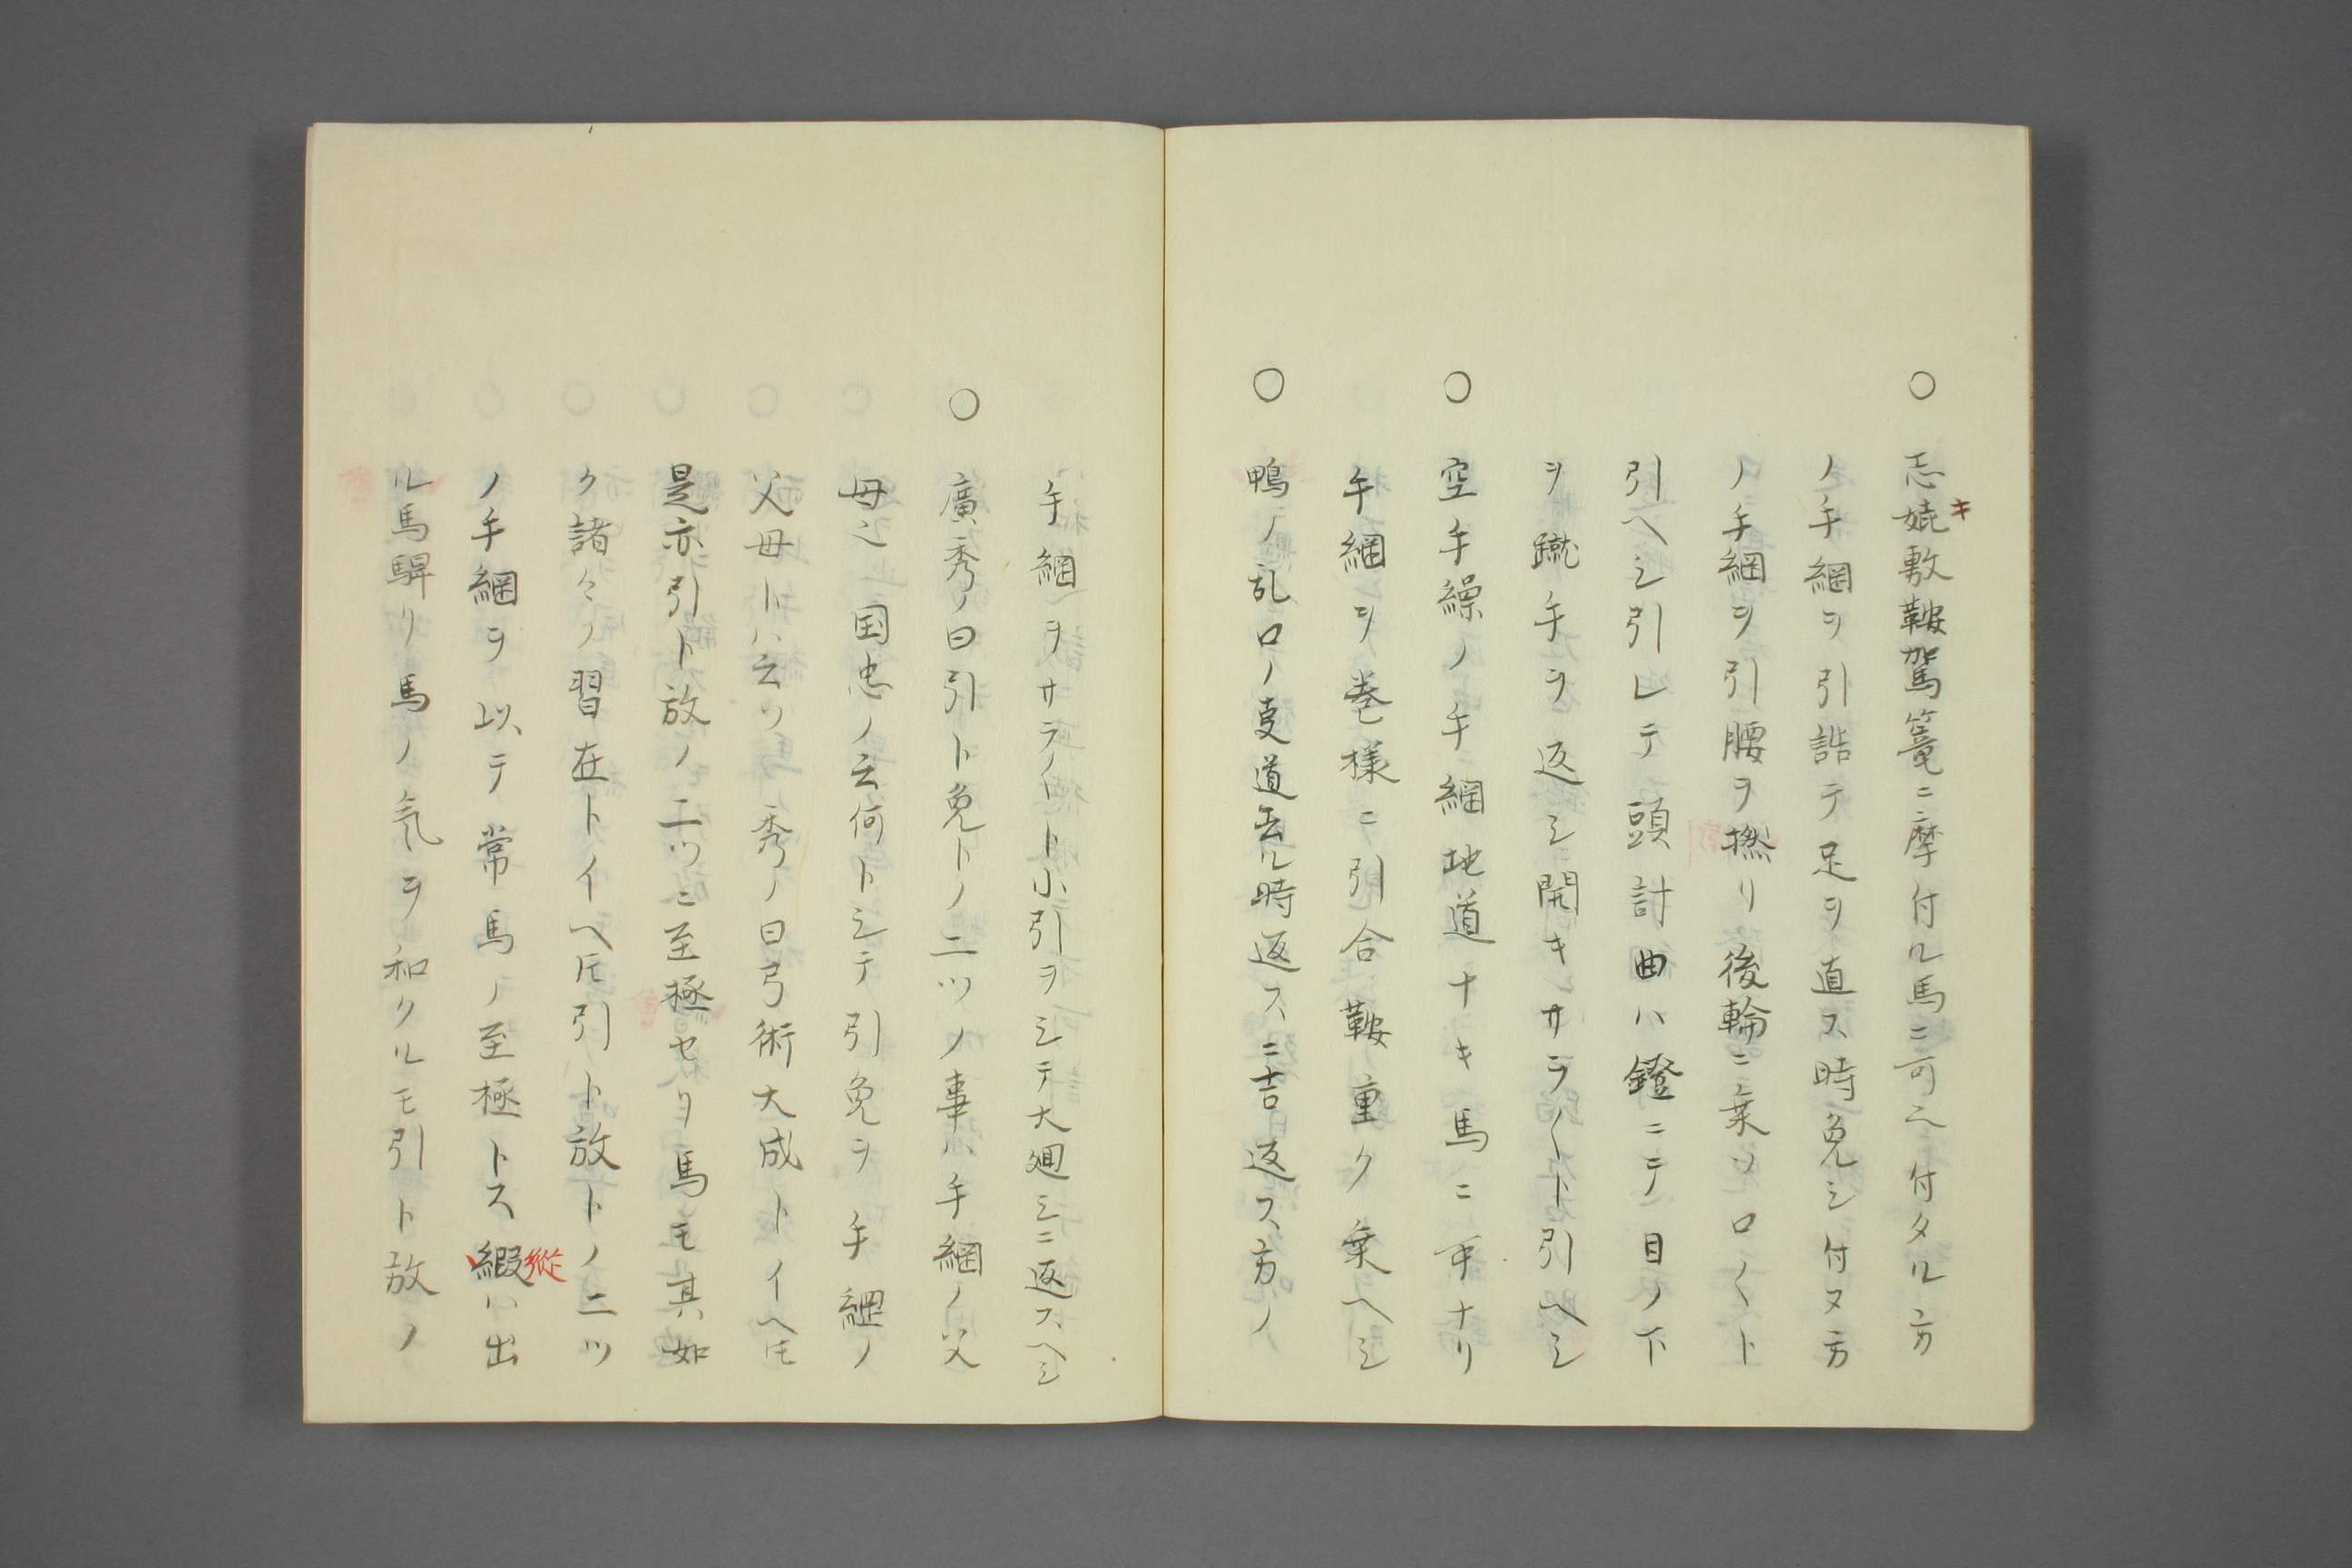 ○ 志嬈敷鞍駕篭ニ摩付ル馬ニ可ヘ付タル方
キ
ノ手綱ヲ引詰テ足ヲ直ス時免シ付ヌ方
ノ手綱ヲ引腰ヲ撚リ後輪ニ乗ツロ〳〵ト
引ヘシ引レテ頭計曲ハ鐙ニテ目ノ下
ヲ蹴手ヲ返シ開キシサラ〳〵ト引ヘシ
○ 空手繰ノ手綱地道ナキ馬ニ用ナリ
手綱ヲ巻様ニ引合鞍重ク乗ヘシ
○ 鴨ノ乱ロノ叓道去ル時返スニ吉返ス方ノ
手綱ヲサラ〳〵ト小引ヲシテ大廻シニ返スヘシ
○ 廣秀ノ曰引ト免トノ二ツノ事ハ手綱ノ父
母也国忠ノ云何トシテ引免ヲ手綱ノ
父母トハ云ソ秀ノ曰弓術大成トイヘ𪜈
是亦引ト放ノ二ツニ至極セリ馬モ其如
ク諸々ノ習在トイヘ𪜈引ト放トノ二ツ
ノ手綱ヲ以テ常馬ノ至極トス緞ハ出
縦
ル馬騂リ馬ノ気ヲ和クルモ引ト放ノ